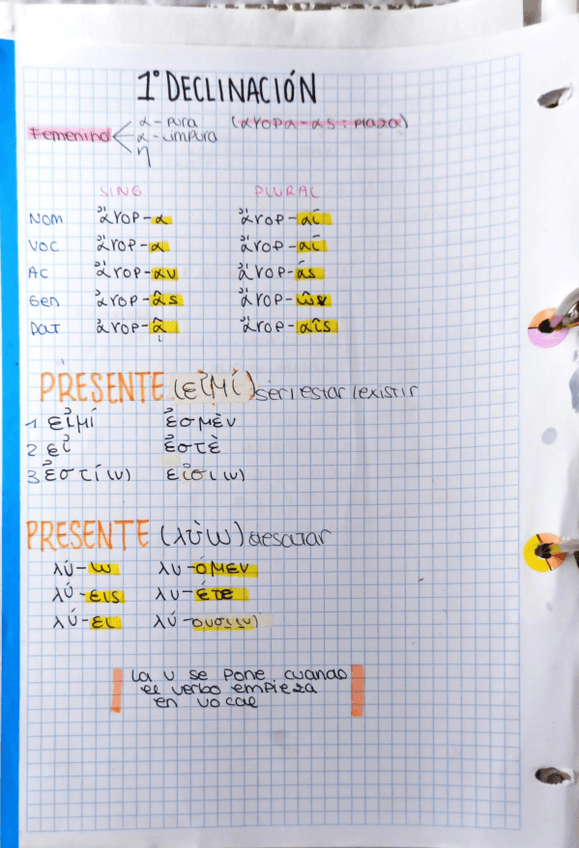 1º DECLINACIÓN
Femenino α - pura (αγορα - ας : plaza)
α - impura
η
SING PLURAL
Nom ἄγορ-α ἄγορ-αί
Voc ἄγορ-α ἄγορ-αί
Ac ἄγορ-αν ἄγορ-άς
Gen ἀγορ-ᾶς ἄγορ-ῶν
Dat ἀγορ-ᾷ ἄγορ-αῖς
PRESENTE (εἰμί) ser/estar/existir
1 εἰμί ἐσμὲν
2 εἶ ἐστὲ
3 ἐστί(ν) εἰσι(ν)
PRESENTE (λύω) desatar
λύ-ω λυ-όμεν
λύ-εις λυ-έτε
λύ-ει λύ-ουσι(ν)
la ν se pone cuando
el verbo empieza
en vocal